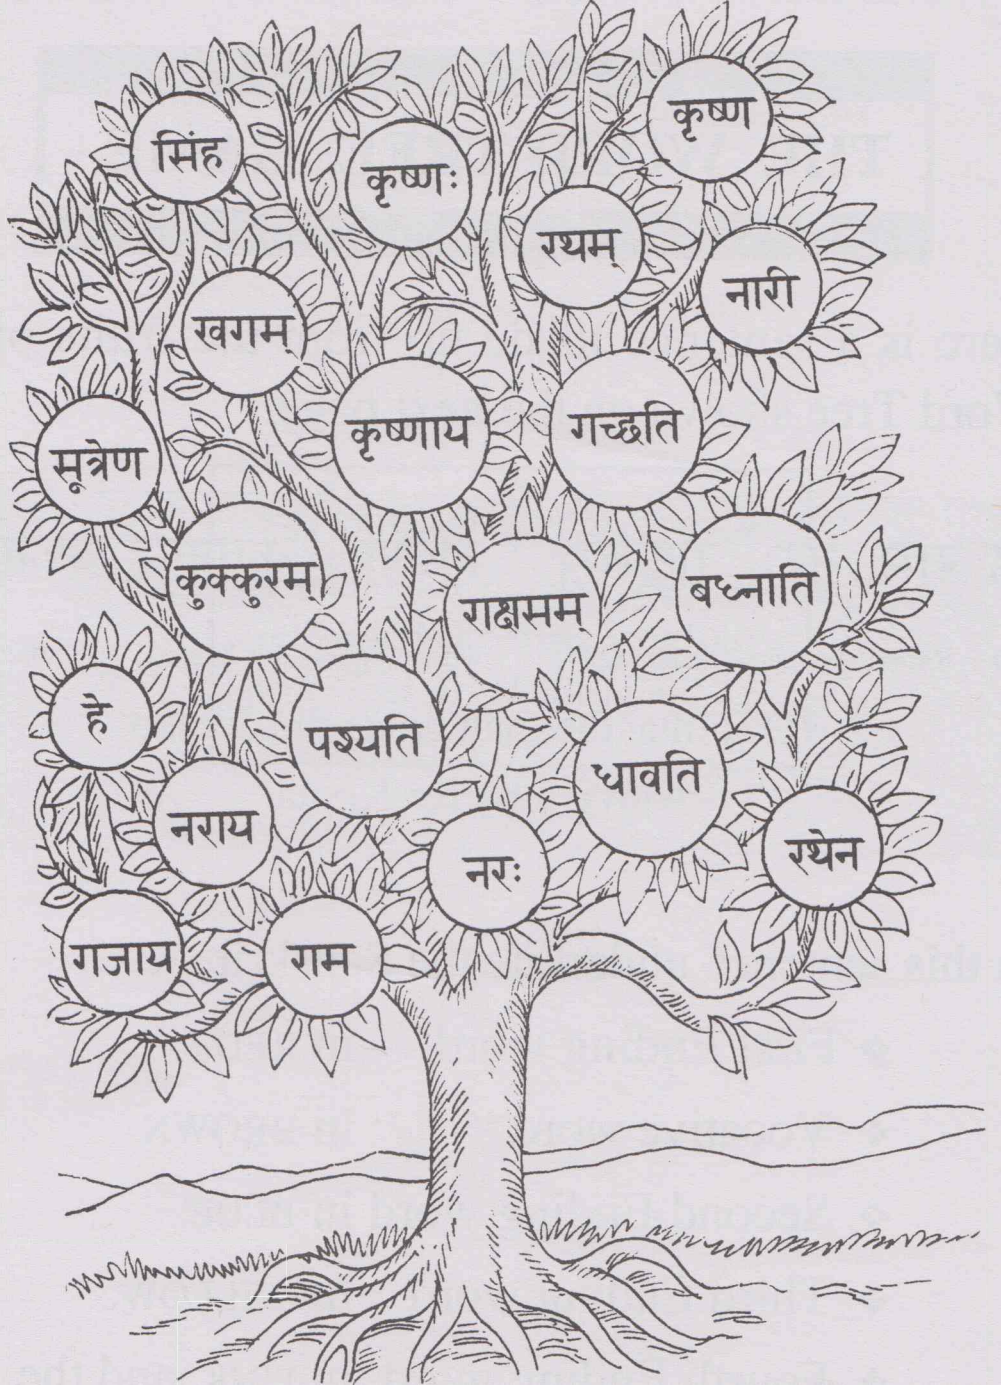 सिंह
कृष्णः
कृष्ण
रथम्
नारी
खगम्
कृष्णाय
गच्छति
सूत्रेण
कुक्कुरम्
राक्षसम्
बध्नाति
हे
पश्यति
धावति
नराय
नरः
रथेन
गजाय
राम